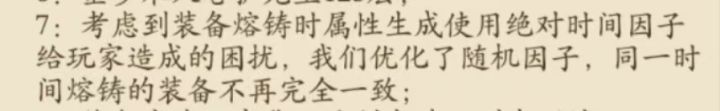 7：考虑到装备熔铸时属性生成使用绝对时间因子
给玩家造成的困扰，我们优化了随机因子，同一时
间熔铸的装备不再完全一致；